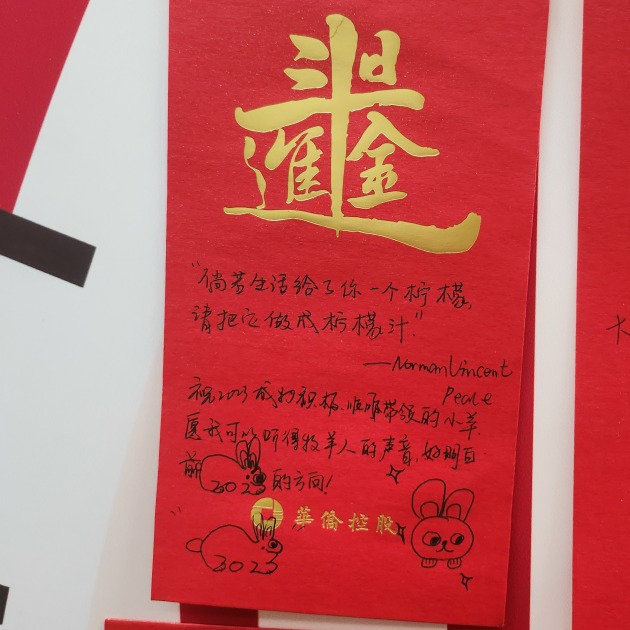 日進斗金
"倘若生活给了你一个柠檬,
请把它做成柠檬汁."
—Norman Vincent
Peale
祝2023成为积极、带领的小羊.
愿我可以听得牧羊人的声音,好明白
前2023的方向!
華僑控股
2023